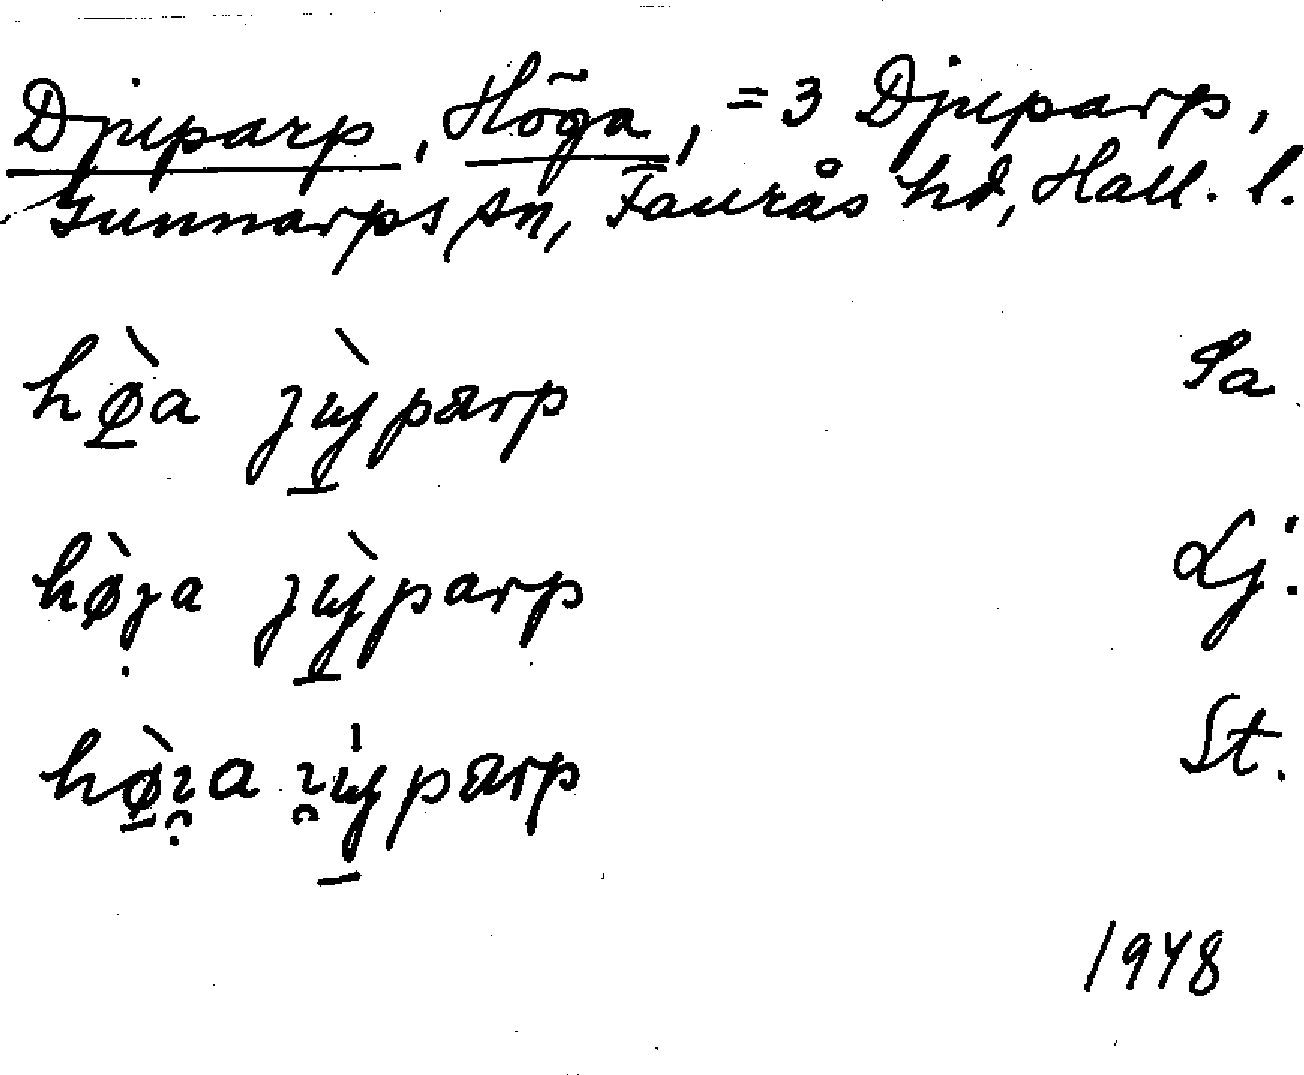 Djuparp, Höga, = 3 Djuparp,
Gunnarps sn, Faurås hd, Hall. l.
hø̠̀a ȷẁ̠parp Sa
hø̀ȷ̣a ȷẁ̠parp Lj.
St.
1948